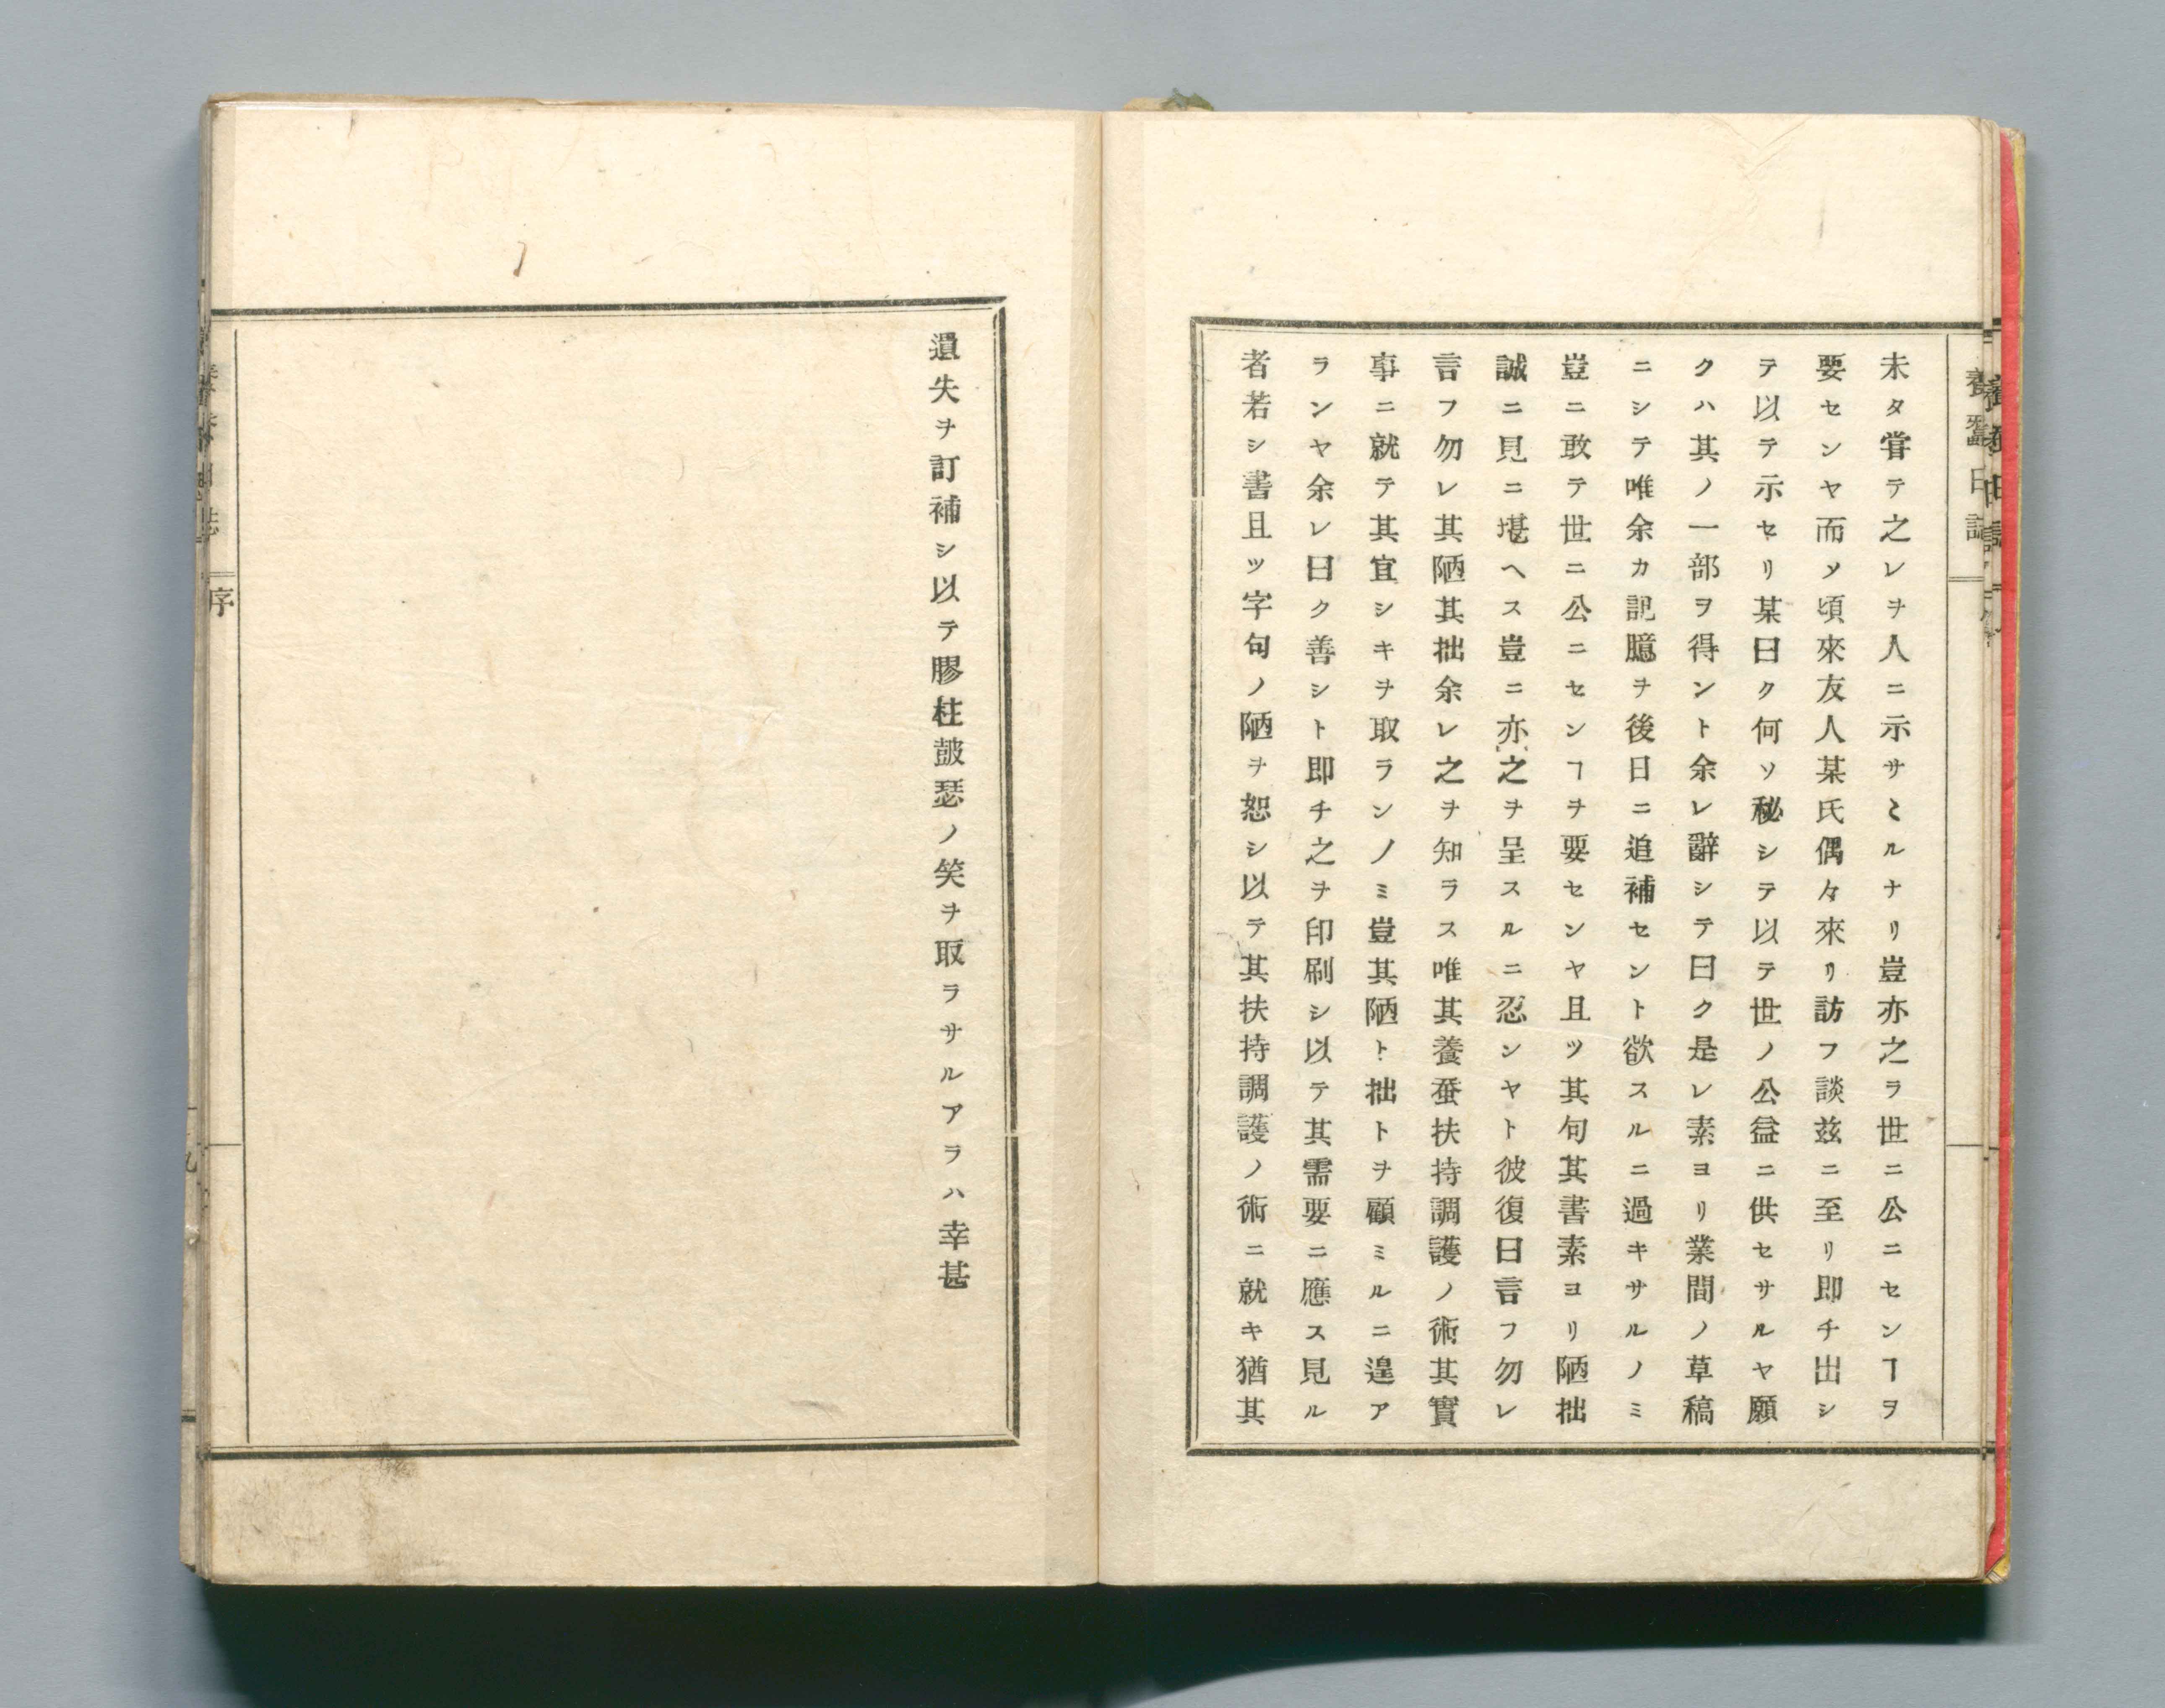 養蠶日誌
未タ甞テ之レヲ人ニ示サミルナリ豈亦之ラ世ニ公ニセンヿヲ
要センヤ而ソ頃來友人某氏偶々來リ訪フ談玆ニ至リ即チ出シ
テ以テ示セリ某曰ク何ソ秘シテ以テ世ノ公益ニ供セサルヤ願
クハ其ノ一部ヲ得ント余レ辭シテ曰ク是レ素ヨリ業間ノ草稿
ニシテ唯余カ記臆ヲ後日ニ追補セント欲スルニ過キサルノミ
豈ニ敢テ世ニ公ニセンヿヲ要センヤ且ツ其句其書素ヨリ陋拙
誠ニ見ニ堪ヘス豈ニ亦之ヲ呈スルニ忍ンヤト彼復曰言フ勿レ
言フ勿レ其陋其拙余レ之ヲ知ラス唯其養蚕扶持調護ノ術其實
事ニ就テ其宜シキヲ取ランノミ豈其陋ト拙トヲ顧ミルニ遑ア
ランヤ余レ曰ク善シト即チ之ヲ印刷シ以テ其需要ニ應ス見ル
者若シ書且ツ字句ノ陋ヲ恕シ以テ其扶持調護ノ術ニ就キ猶其
遺失ヲ訂補シ以テ膠柱皷瑟ノ笑ヲ取ラサルアラハ幸甚
序